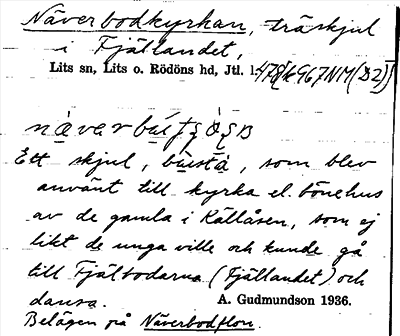 Näverbodkyrkan, träskjul
i Fjällandet,
Lits sn, Lits o. Rödöns hd, Jtl. l.
Ett skjul, bustà, som blev
använt till kyrka el. bönehus
av de gamla i Källåsen, som ej
likt de unga ville och kunde gå
till Fjälbodarna (Fjällandet) och
dansa. A. Gudmundson 1936.
Belägen på Näverbodflon